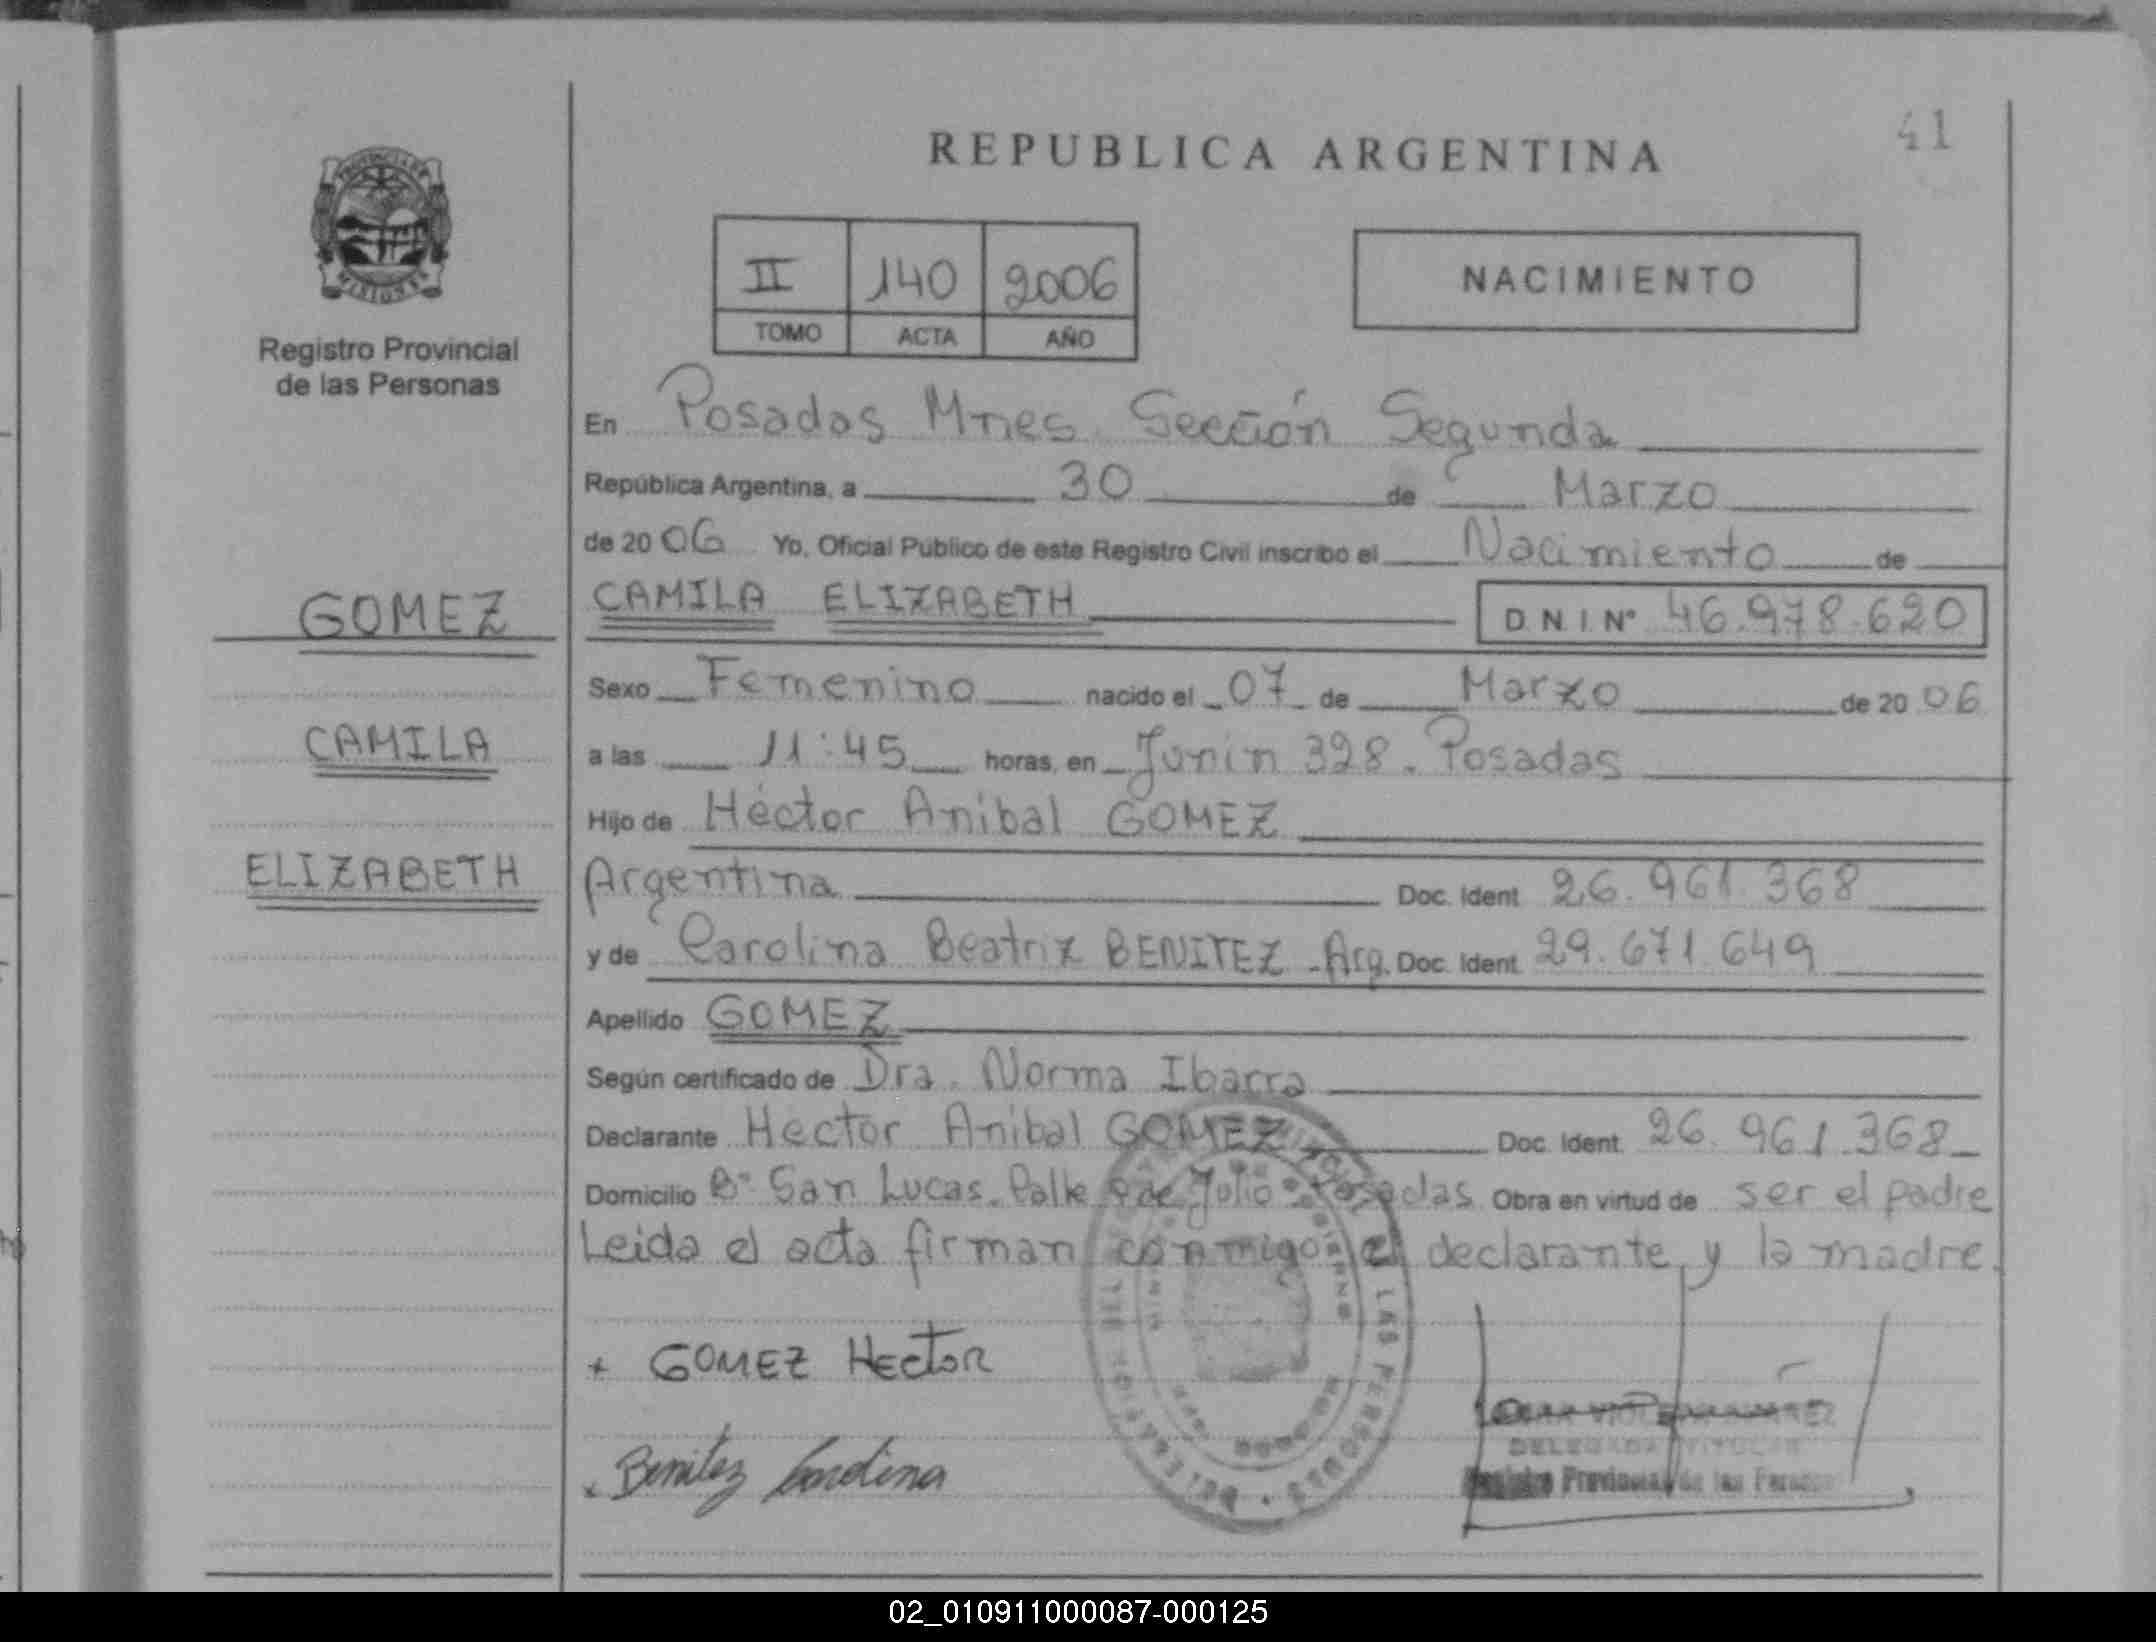 41
REPUBLICA ARGENTINA
PROVINCIA DE
MISIONES
Registro Provincial
de las Personas
II 140 2006
TOMO ACTA AÑO
NACIMIENTO
En Posadas Mnes. Sección Segunda
República Argentina, a 30 de Marzo
de 20 06 Yo, Oficial Público de este Registro Civil inscribo el Nacimiento de
GOMEZ
CAMILA ELIZABETH D.N.I. Nº 46.978.620
Sexo Femenino nacido el 07 de Marzo de 20 06
CAMILA
a las 11:45 horas, en Junín 328. Posadas
Hijo de Héctor Anibal GOMEZ
ELIZABETH
Argentina Doc. Ident. 26.961.368
y de Carolina Beatriz BENITEZ - Arg. Doc. Ident. 29.671.649
Apellido GOMEZ
Según certificado de Dra. Norma Ibarra
Declarante Hector Anibal GOMEZ Doc. Ident. 26.961.368
Domicilio Bº San Lucas. Calle 9 de Julio - Posadas Obra en virtud de ser el padre
Leida el acta firman conmigo el declarante y la madre.
+ GOMEZ HECTOR
x Benitez Carolina
DELEGADA TITULAR
Registro Provincial de las Personas
02_010911000087-000125